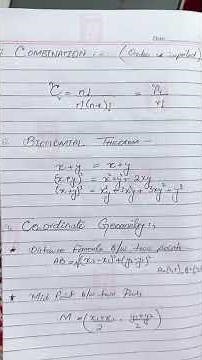 Date
COMBINATION :- (Order is important)
ⁿCᵣ = n! / r!(n-r)! = ⁿPᵣ / r!
BIONOMIAL THEOREM -
x+y = x+y
(x+y)² = x²+y²+2xy
(x+y)³ = x³y+3x²y+3xy²-y³
Coordinate Geometry:
★ Distance formula b/w two points
AB = √(x₂-x₁)²+(y₂-y₁)²
★ Mid Point b/w two Points
M = (x₁+x₂ / 2, y₁+y₂ / 2)